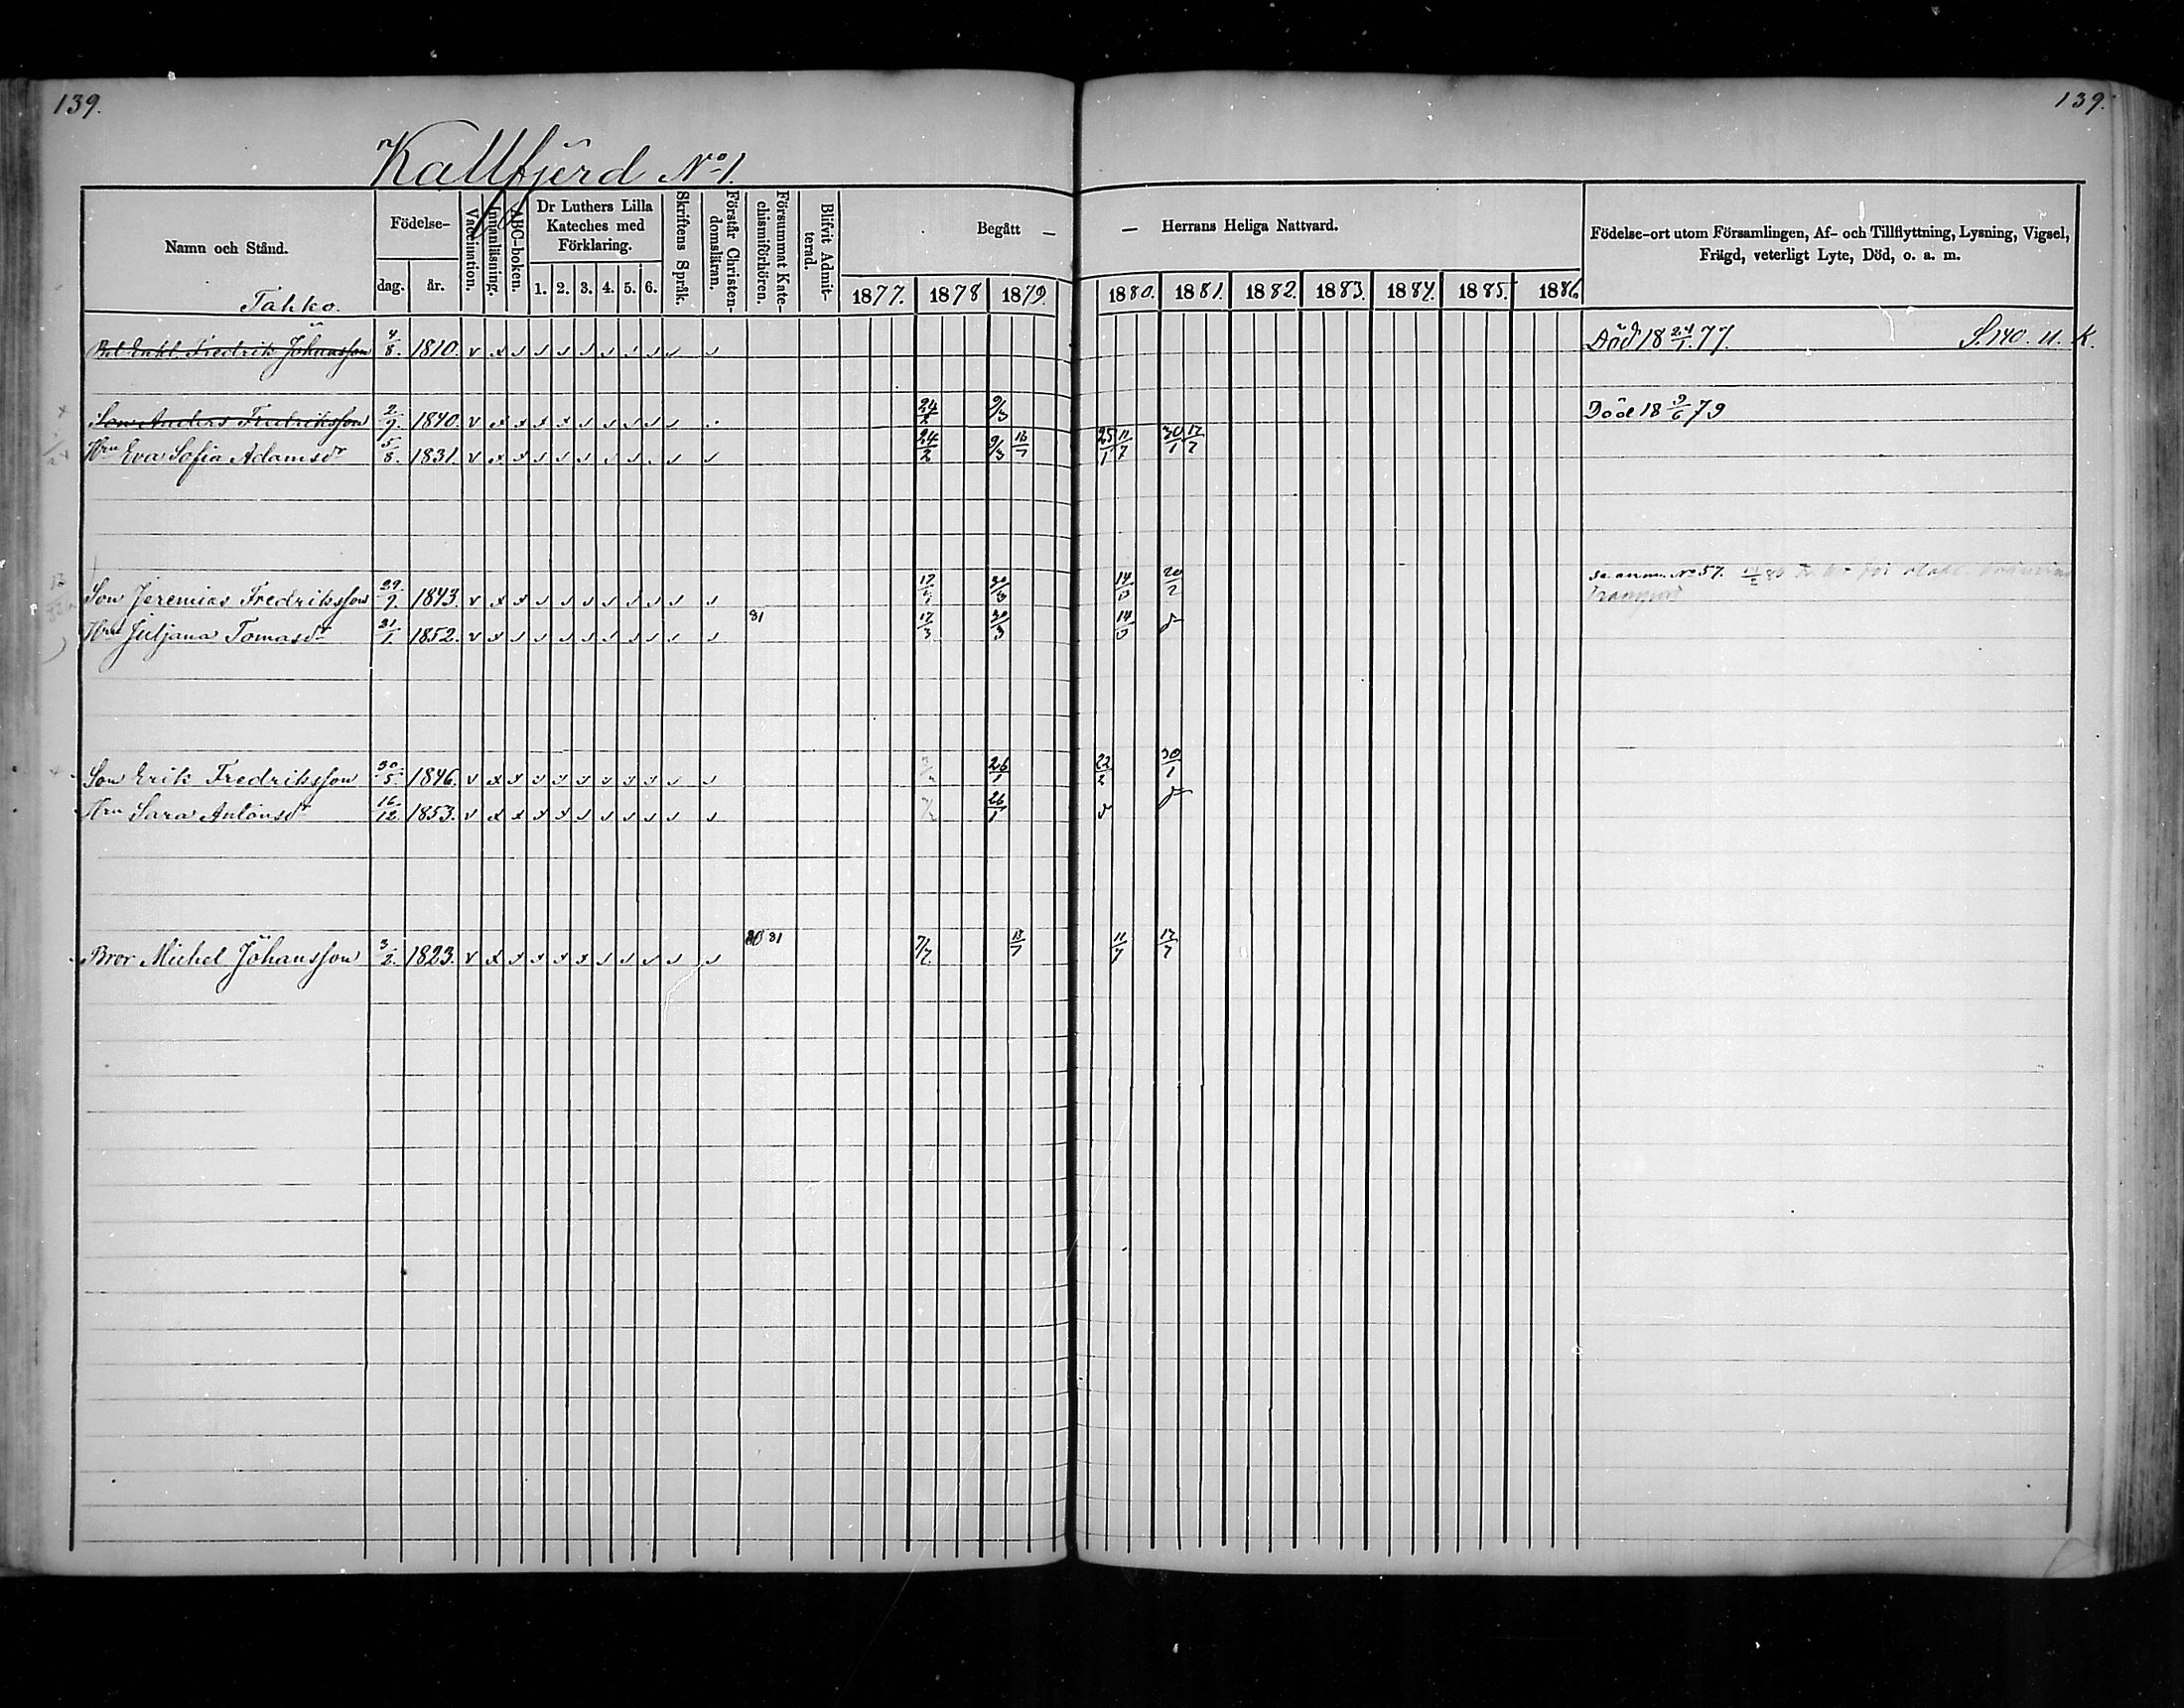 139. 139.
Kallfjerd No 1.
Namn och Stånd. Födelse- Vaccination. Innanläsning. ABC-boken. Dr Luthers Lilla Kateches med Förklaring. Skriftens Språk. Förstår Christendomsläran. Försummat Katechismiförhören. Blifvit Admitterad. Begått — — Herrans Heliga Nattvard. Födelse-ort utom Församlingen, Af- och Tillflyttning, Lysning, Vigsel, Frägd, veterligt Lyte, Död, o. a. m.
dag. år. 1. 2. 3. 4. 5. 6. 1877. 1878 1879. 1880. 1881. 1882. 1883. 1884. 1885. 1886
Tahko.
Fredrik Johansson 4/8. 1810. Död 18 24/1. 77. S. 140. u. K.
Son Anders Fredriksson 2/9. 1840. 24/2 9/3 Död 18 9/6 79
Hru Eva Sofia Adamsdr 5/8. 1831. 24/2 9/3 13/7 25/1 11/7 30/1 17/7
Son Jeremias Fredriksson 29/9. 1843. 17/3 30/3 14/3 20/2 se anm. No 57.
Hru Juljana Tomasdr 21/1. 1852. 81 17/3 30/3 14/3
Son Erik Fredriksson 30/5. 1846. 26/1 22/2 30/1
Hru Sara Antonsdr 16/12 1853. 26/1
Bror Michel Johansson 3/2. 1823. 80 81 7/7. 13/7 11/7 17/7